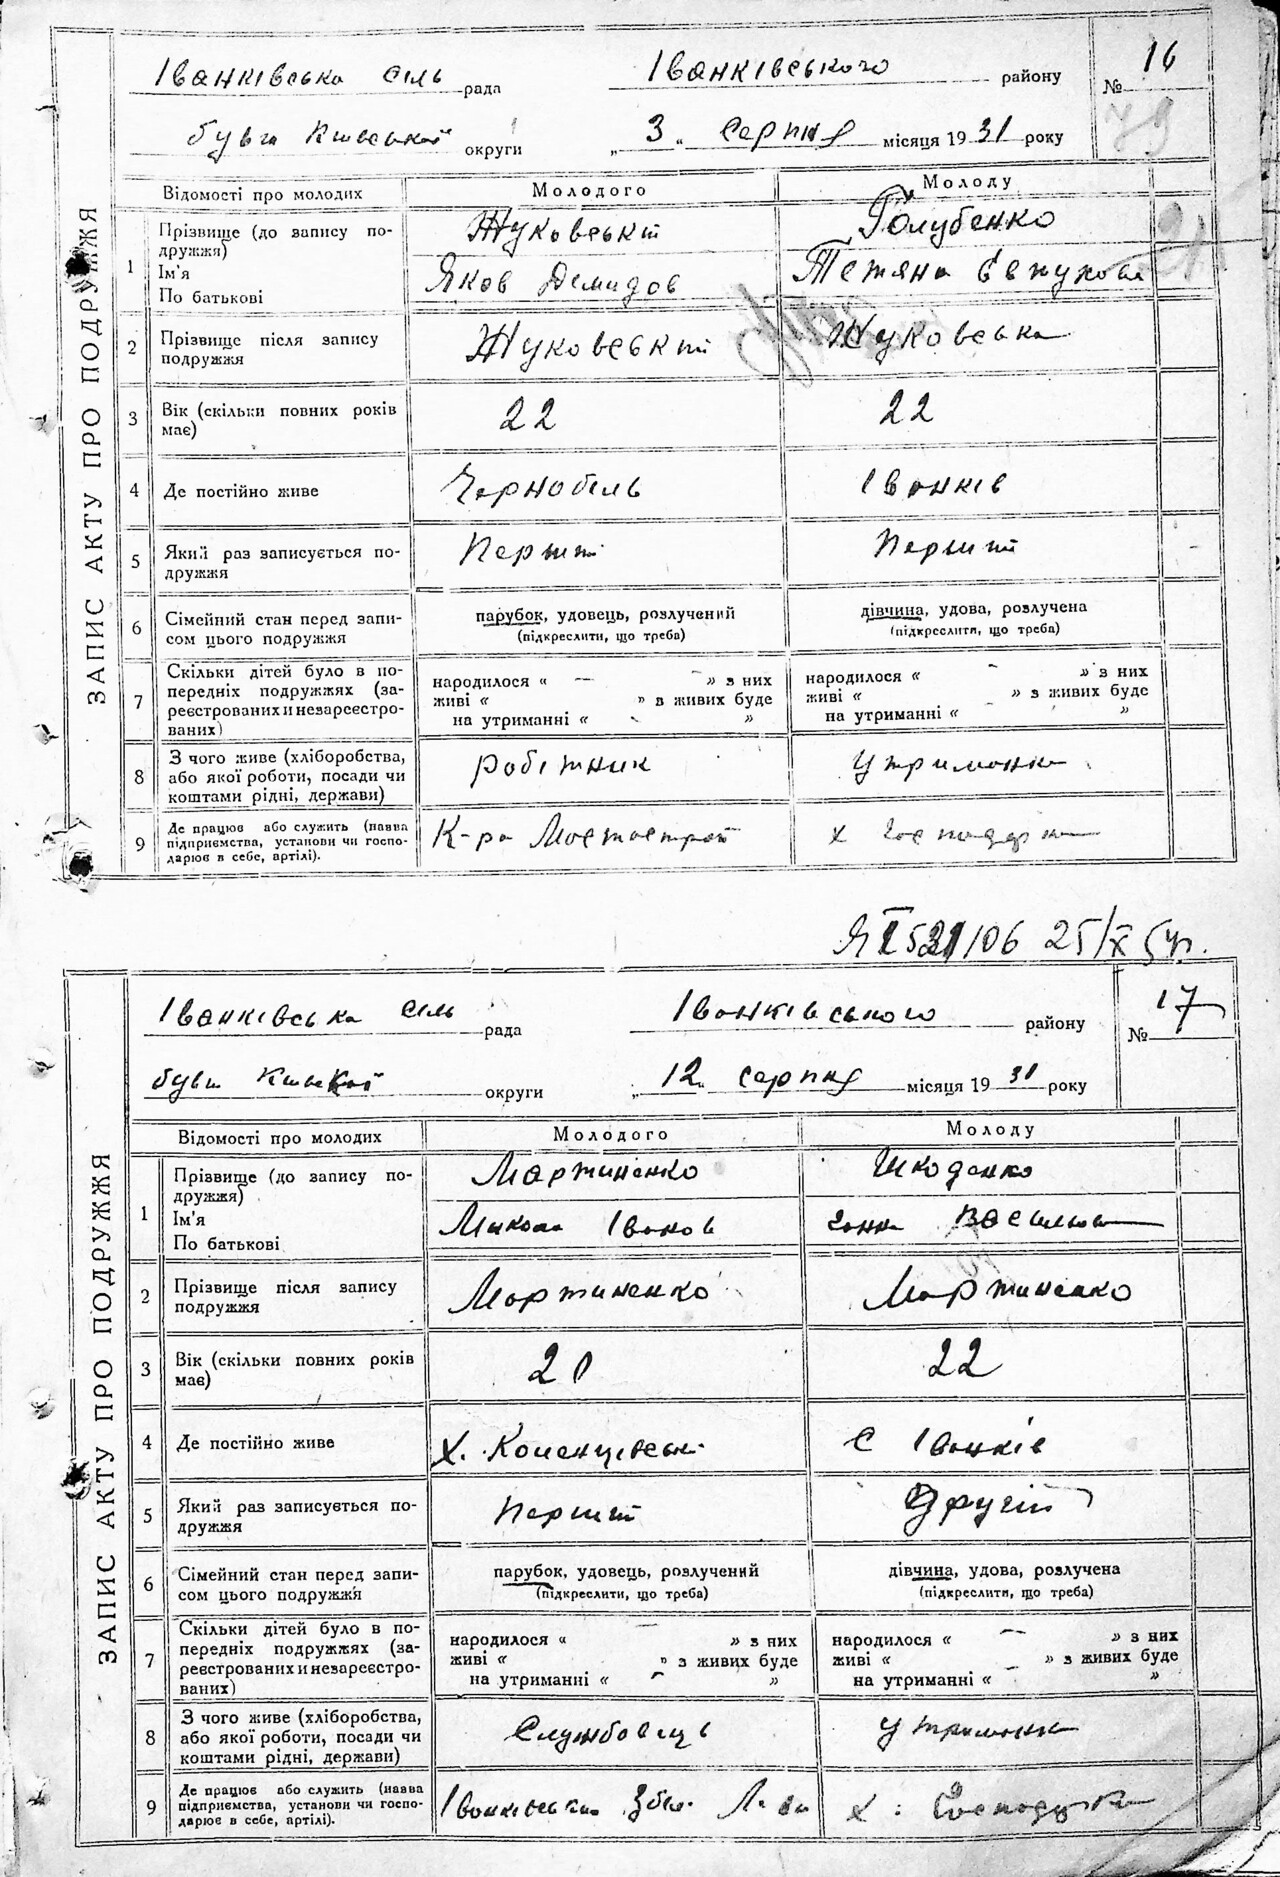 Іванківська сіль рада Іванківського району № 16
бувш Київської округи „ 3 " серпня місяця 1931 року
79
ЗАПИС АКТУ ПРО ПОДРУЖЖЯ
Відомості про молодих Молодого Молоду
1 Прізвище (до запису по-
дружжя)
Ім'я
По батькові
Жуковський Голубенко
Яков Демидов Тетяна
2 Прізвище після запису
подружжя
Жуковський Жуковська
3 Вік (скільки повних років
має)
22 22
4 Де постійно живе Чернобіль Іванків
5 Який раз записується по-
дружжя
Перший Перший
6 Сімейний стан перед запи-
сом цього подружжя
парубок, удовець, розлучений дівчина, удова, розлучена
(підкреслити, що треба) (підкреслити, що треба)
7 Скільки дітей було в по-
передніх подружжях (за-
реєстрованих и незареєстро-
ваних)
народилося « — » з них народилося « — » з них
живі « » з живих буде живі « » з живих буде
на утриманні « - » на утриманні « »
8 З чого живе (хліборобства,
або якої роботи, посади чи
коштами рідні, держави)
робітник утриманка
9 Де працює або служить (назва
підприємства, установи чи госпо-
дарює в себе, артілі).
К-ра Мостострой х Господарка
25/X 54р.
Іванківська сіль рада Іванківського району № 17
бувш Київської округи „ 12 " серпня місяця 1931 року
ЗАПИС АКТУ ПРО ПОДРУЖЖЯ
Відомості про молодих Молодого Молоду
1 Прізвище (до запису по-
дружжя)
Ім'я
По батькові
Мартиненко Шкоденко
Микола Іванов Ганна Васильовна
2 Прізвище після запису
подружжя
Мартиненко Мартиненко
3 Вік (скільки повних років
має)
20 22
4 Де постійно живе х. с Іванків
5 Який раз записується по-
дружжя
Перший Другий
6 Сімейний стан перед запи-
сом цього подружжя
парубок, удовець, розлучений дівчина, удова, розлучена
(підкреслити, що треба) (підкреслити, що треба)
7 Скільки дітей було в по-
передніх подружжях (за-
реєстрованих и незареєстро-
ваних)
народилося « » з них народилося « — » з них
живі « » з живих буде живі « » з живих буде
на утриманні « — » на утриманні « — »
8 З чого живе (хліборобства,
або якої роботи, посади чи
коштами рідні, держави)
Службовець утриманка
9 Де працює або служить (назва
підприємства, установи чи госпо-
дарює в себе, артілі).
Іванківська х. Господарка